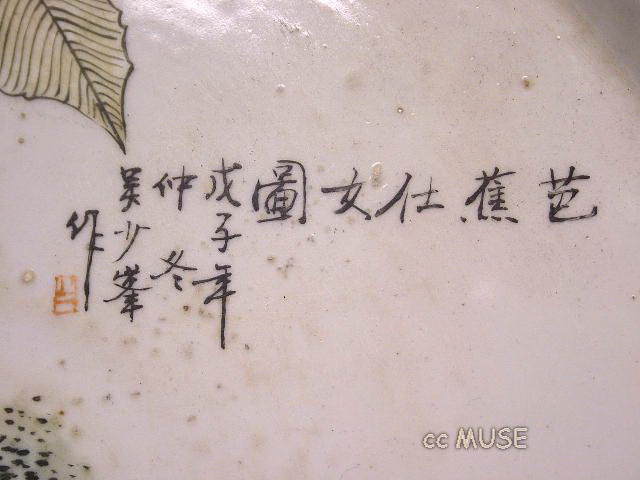 芭蕉仕女圖
戊子年
仲冬
吴少峯
作
cc MUSE